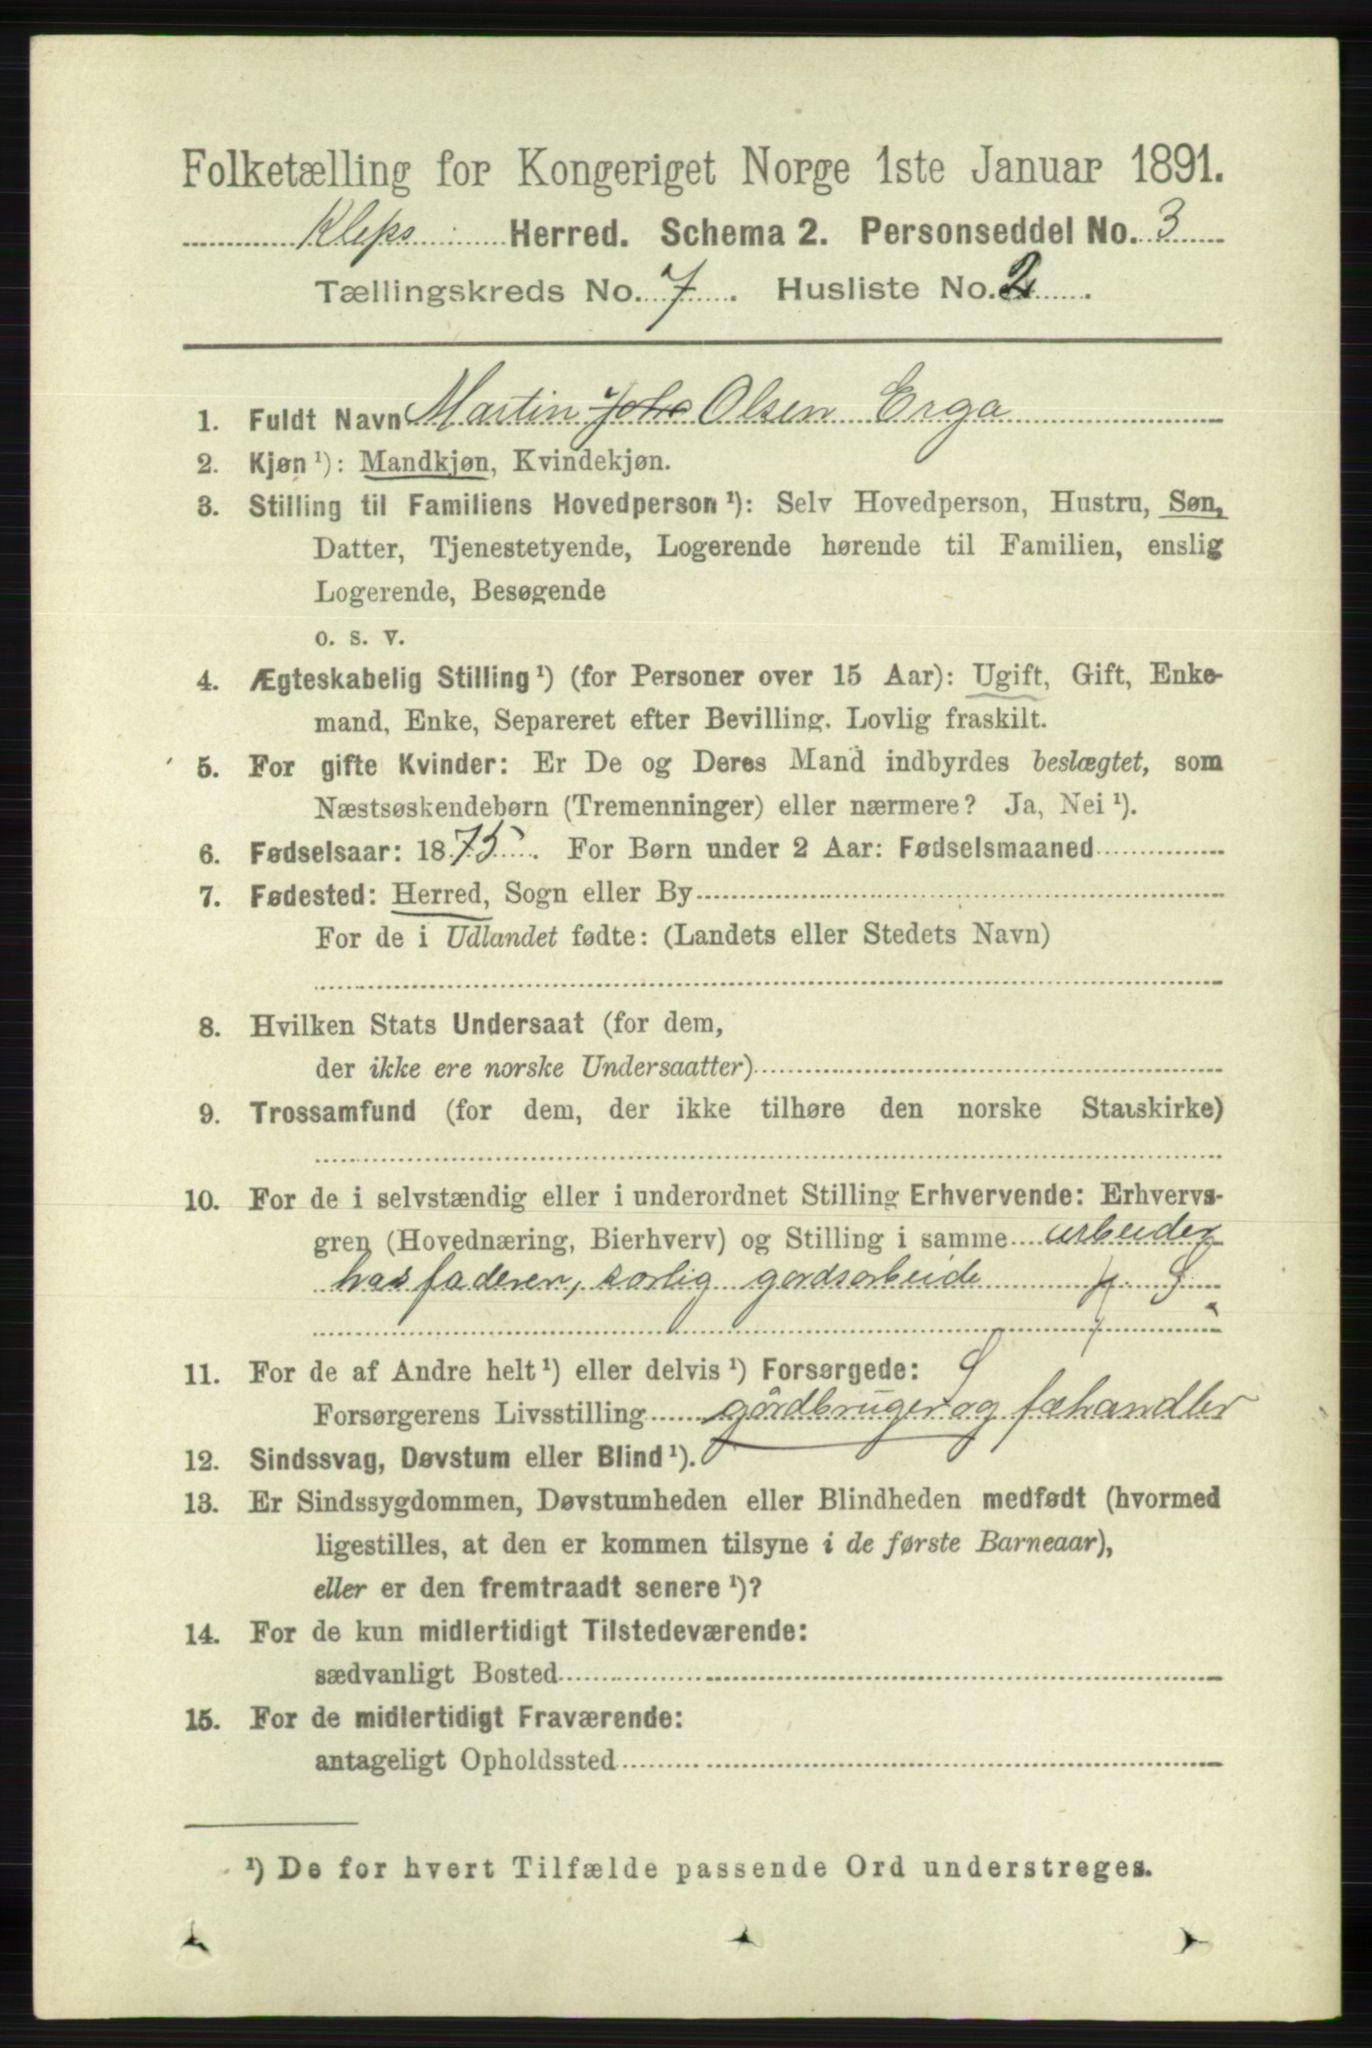 Folketælling for Kongeriget Norge 1ste Januar 1891.
Kleps Herred. Schema 2. Personseddel No. 3
Tællingskreds No. 7. Husliste No. 2.
1. Fuldt Navn Martin Joh Olsen Erga
2. Kjøn ¹): Mandkjøn, Kvindekjøn.
3. Stilling til Familiens Hovedperson ¹): Selv Hovedperson, Hustru, Søn,
Datter, Tjenestetyende, Logerende hørende til Familien, enslig
Logerende, Besøgende
o. s. v.
4. Ægteskabelig Stilling ¹) (for Personer over 15 Aar): Ugift, Gift, Enke-
mand, Enke, Separeret efter Bevilling. Lovlig fraskilt.
5. For gifte Kvinder: Er De og Deres Mand indbyrdes beslægtet, som
Næstsøskendebørn (Tremenninger) eller nærmere? Ja, Nei ¹).
6. Fødselsaar: 1875. For Børn under 2 Aar: Fødselsmaaned
7. Fødested: Herred, Sogn eller By
For de i Udlandet fødte: (Landets eller Stedets Navn)
8. Hvilken Stats Undersaat (for dem,
der ikke ere norske Undersaatter)
9. Trossamfund (for dem, der ikke tilhøre den norske Statskirke)
10. For de i selvstændig eller i underordnet Stilling Erhvervende: Erhvervs-
gren (Hovednæring, Bierhverv) og Stilling i samme arbeider
has faderen, særlig gardsarbeide
11. For de af Andre helt ¹) eller delvis ¹) Forsørgede:
Forsørgerens Livsstilling gårdbruger og fæhandler
12. Sindssvag, Døvstum eller Blind ¹).
13. Er Sindssygdommen, Døvstumheden eller Blindheden medfødt (hvormed
ligestilles, at den er kommen tilsyne i de første Barneaar),
eller er den fremtraadt senere ¹)?
14. For de kun midlertidigt Tilstedeværende:
sædvanligt Bosted
15. For de midlertidigt Fraværende:
antageligt Opholdssted
¹) De for hvert Tilfælde passende Ord understreges.